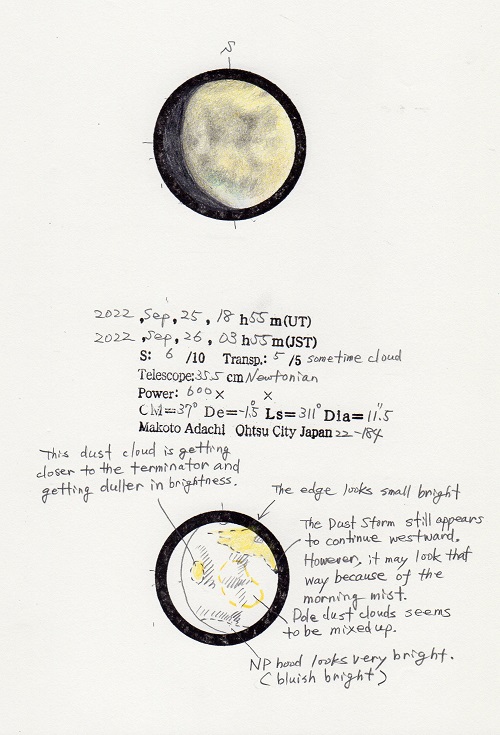 S
2022, Sep, 25, 18 h 55 m (UT)
2022, Sep, 26, 03 h 55 m (JST)
S: 6 /10 Transp.: 5 /5 sometime cloud
Telescope: 355 cm Newtonian
Power: 600 × ×
CM=37° De=-1.5° Ls=311° Dia=11".5
Makoto Adachi Ohtsu City Japan 22-184
This dust cloud is getting
closer to the terminator and
getting duller in brightness.
The edge looks small bright
The Dust Storm still appears
to continue westward.
However, it may look that
way because of the
morning mist.
Pole dust clouds seems
to be mixed up.
NP hood looks very bright.
(bluish bright)